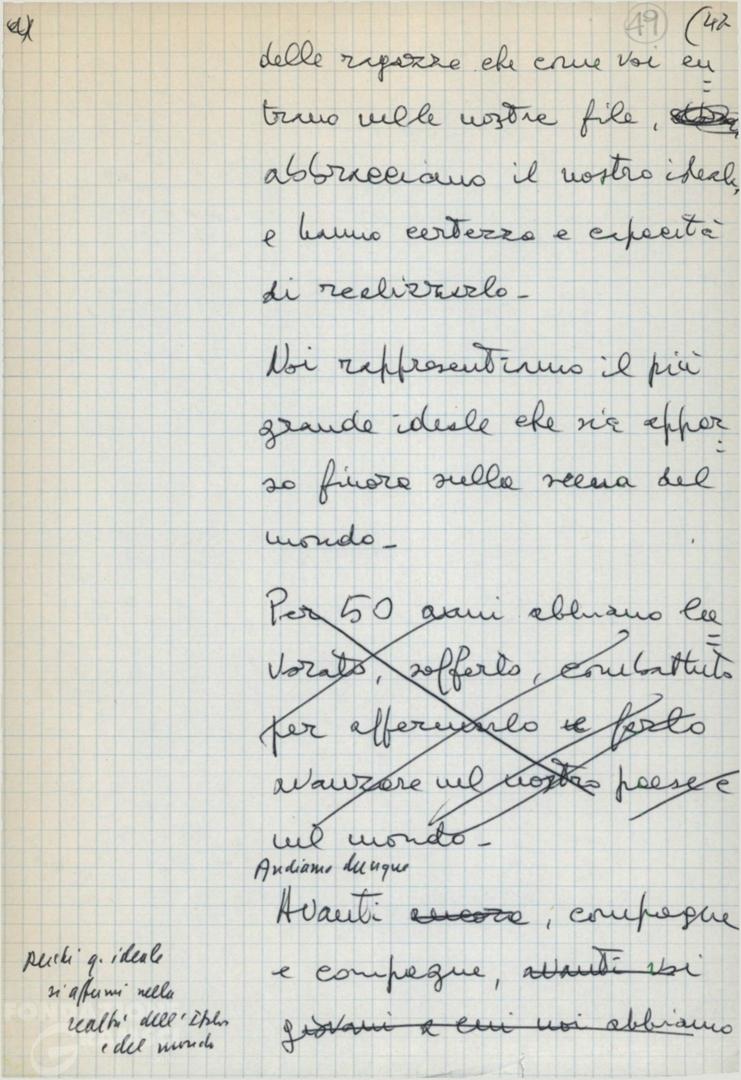 49 (42
delle ragazze che come voi en
trano nelle nostre file,
abbracciano il nostro ideale,
e hanno certezza e capacità
di realizzarlo -
Noi rappresentiamo il più
grande ideale che sia appar
so finora sulla scena del
mondo -
Per 50 anni abbiamo la
vorato, sofferto, combattuto
per affermarlo e farlo
avanzare nel nostro paese e
nel mondo -
Andiamo dunque
Avanti ancora, compagne
e compagne, avanti voi
giovani a cui noi abbiamo
perché q. ideale
si affermi nella
realtà dell'Italia
e del mondo